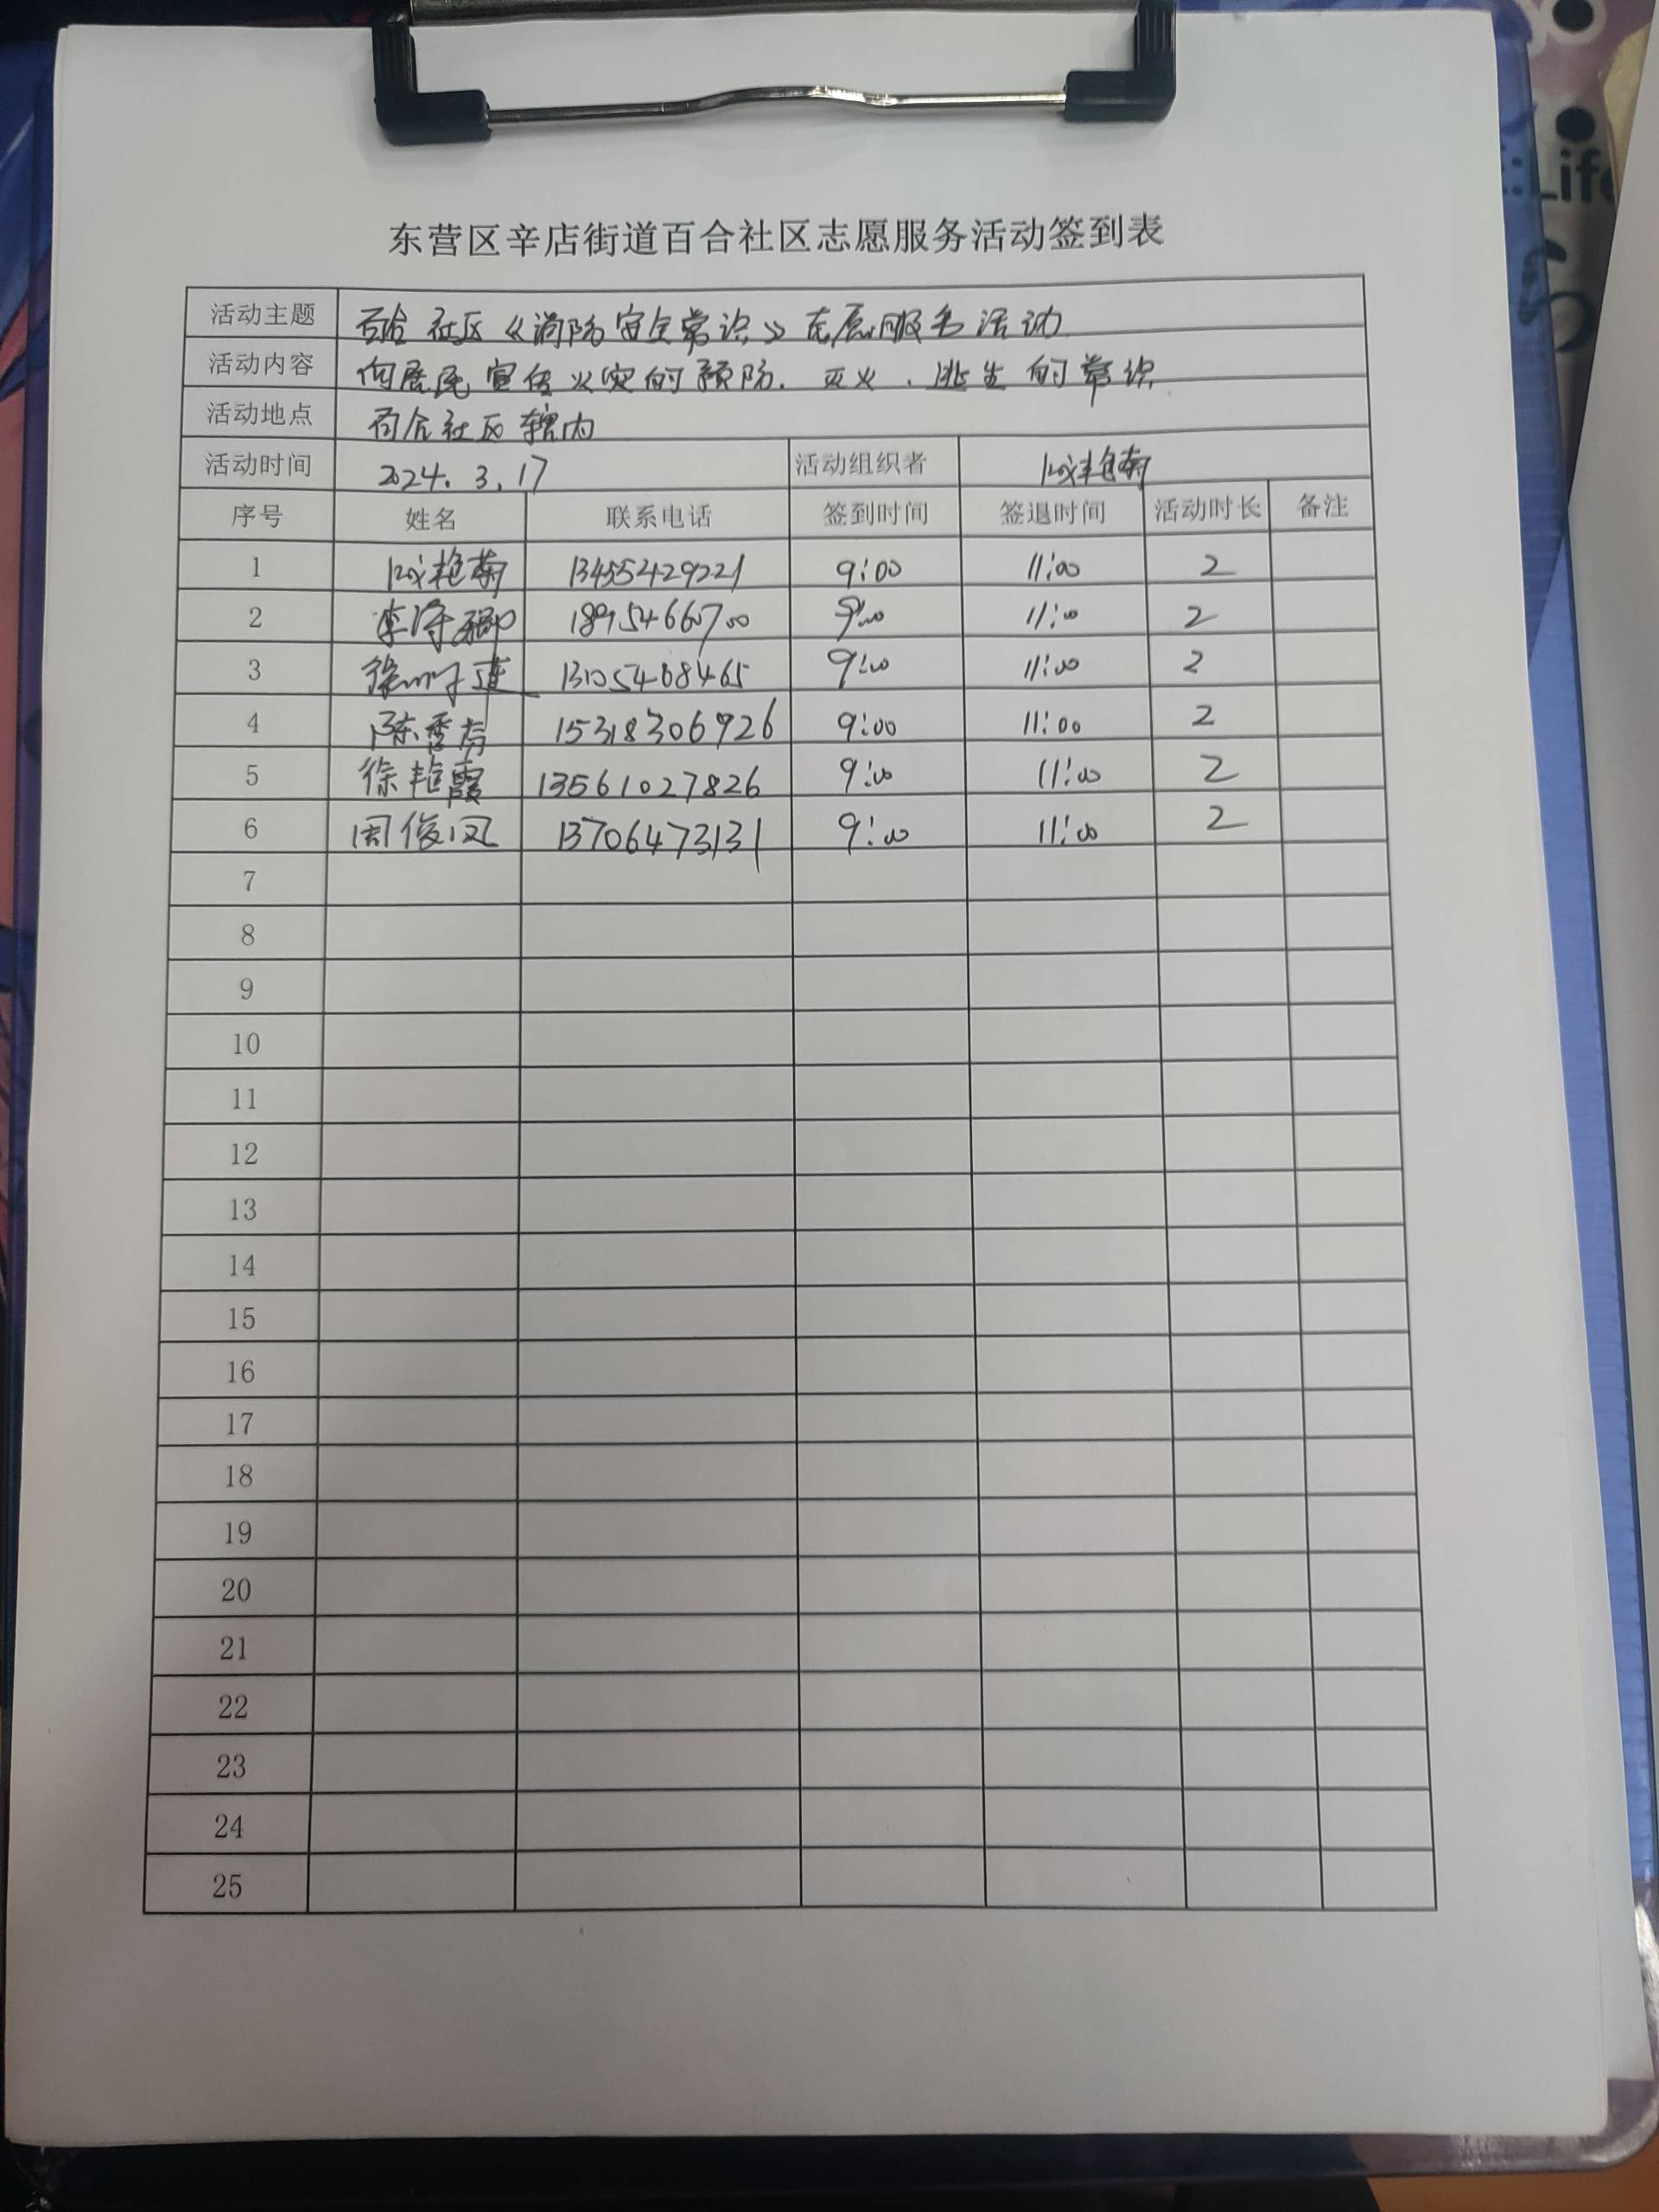 东营区辛店街道百合社区志愿服务活动签到表
活动主题 百合社区《消防安全常识》志愿服务活动
活动内容 向居民宣传火灾的预防、灭火、逃生的常识
活动地点 百合社区辖内
活动时间 2024.3.17 活动组织者 艳菊
序号 姓名 联系电话 签到时间 签退时间 活动时长 备注
1 艳菊 13455429221 9:00 11:00 2
2 李 9:00 11:00 2
3 徐 9:00 11:00 2
4 陈秀芳 15318306926 9:00 11:00 2
5 徐艳霞 13561027826 9:00 11:00 2
6 周俊凤 13706473131 9:00 11:00 2
7
8
9
10
11
12
13
14
15
16
17
18
19
20
21
22
23
24
25
Life